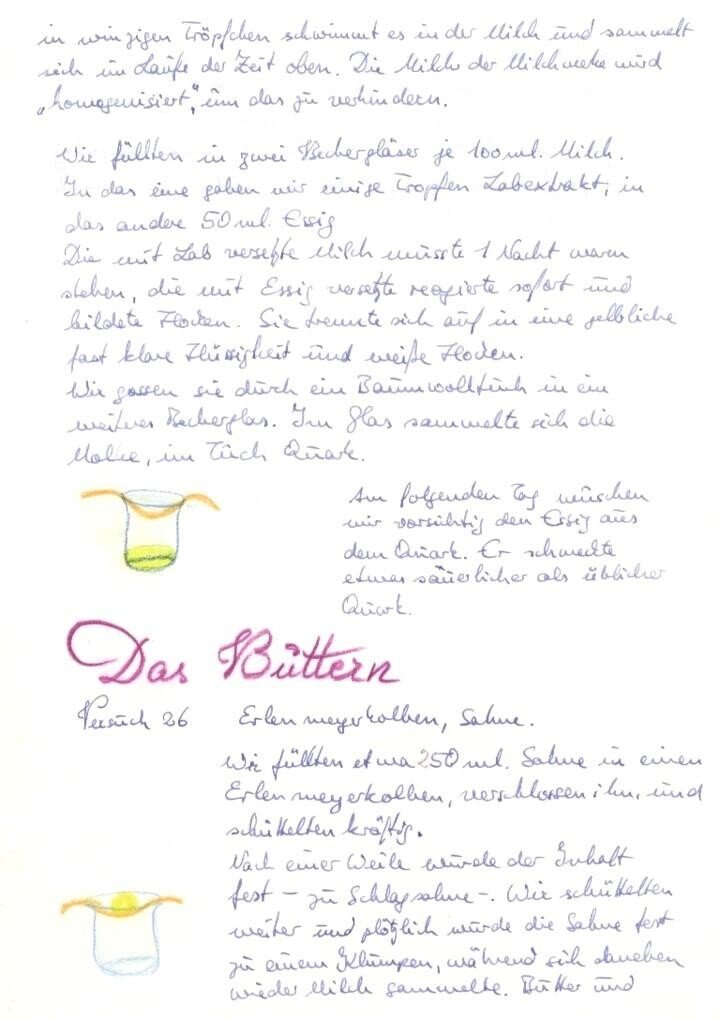 in winzigen Tröpfchen schwimmt es in der Milch und sammelt
sich im Laufe der Zeit oben. Die Milch der Milchwerke wird
„homogenisiert", um das zu verhindern.
Wir füllten in zwei Bechergläser je 100 ml. Milch.
In das eine gaben wir einige Tropfen Labextrakt, in
das andere 50 ml. Essig
Die mit Lab versetzte Milch musste 1 Nacht warm
stehen, die mit Essig versetzte reagierte sofort und
bildete Flocken. Sie trennte sich auf in eine gelbliche
fast klare Flüssigkeit und weiße Flocken.
Wir gossen sie durch ein Baumwolltuch in ein
weiteres Becherglas. Im Glas sammelte sich die
Molke, im Tuch Quark.
Am folgenden Tag wuschen
wir vorsichtig den Essig aus
dem Quark. Er schmeckte
etwas säuerlicher als üblicher
Quark.
Das Buttern
Versuch 26 Erlenmeyerkolben, Sahne.
Wir füllten etwa 250 ml. Sahne in einen
Erlenmeyerkolben, verschlossen ihn, und
schüttelten kräftig.
Nach einer Weile wurde der Inhalt
fest – zu Schlagsahne –. Wir schüttelten
weiter und plötzlich wurde die Sahne fest
zu einem Klumpen, während sich daneben
wieder Milch sammelte. Butter und